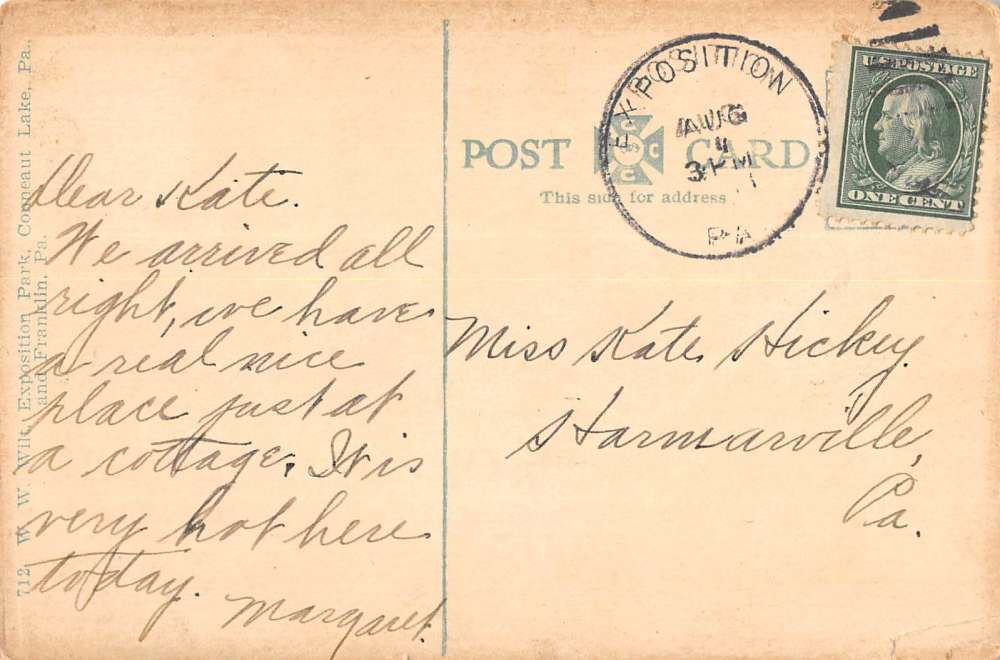 712. W. W. Wilt, Exposition Park, Conneaut Lake, Pa.,
and Franklin, Pa.
Dear Kate.
We arrived all
right, we have
a real nice
place just at
a cottage. It is
very hot here
today.
Margaret.
POST CARD
This side for address
EXPOSITION
AUG
3 PM
PA
U.S. POSTAGE
ONE CENT
Miss Kate Hickey
Harmarville,
Pa.